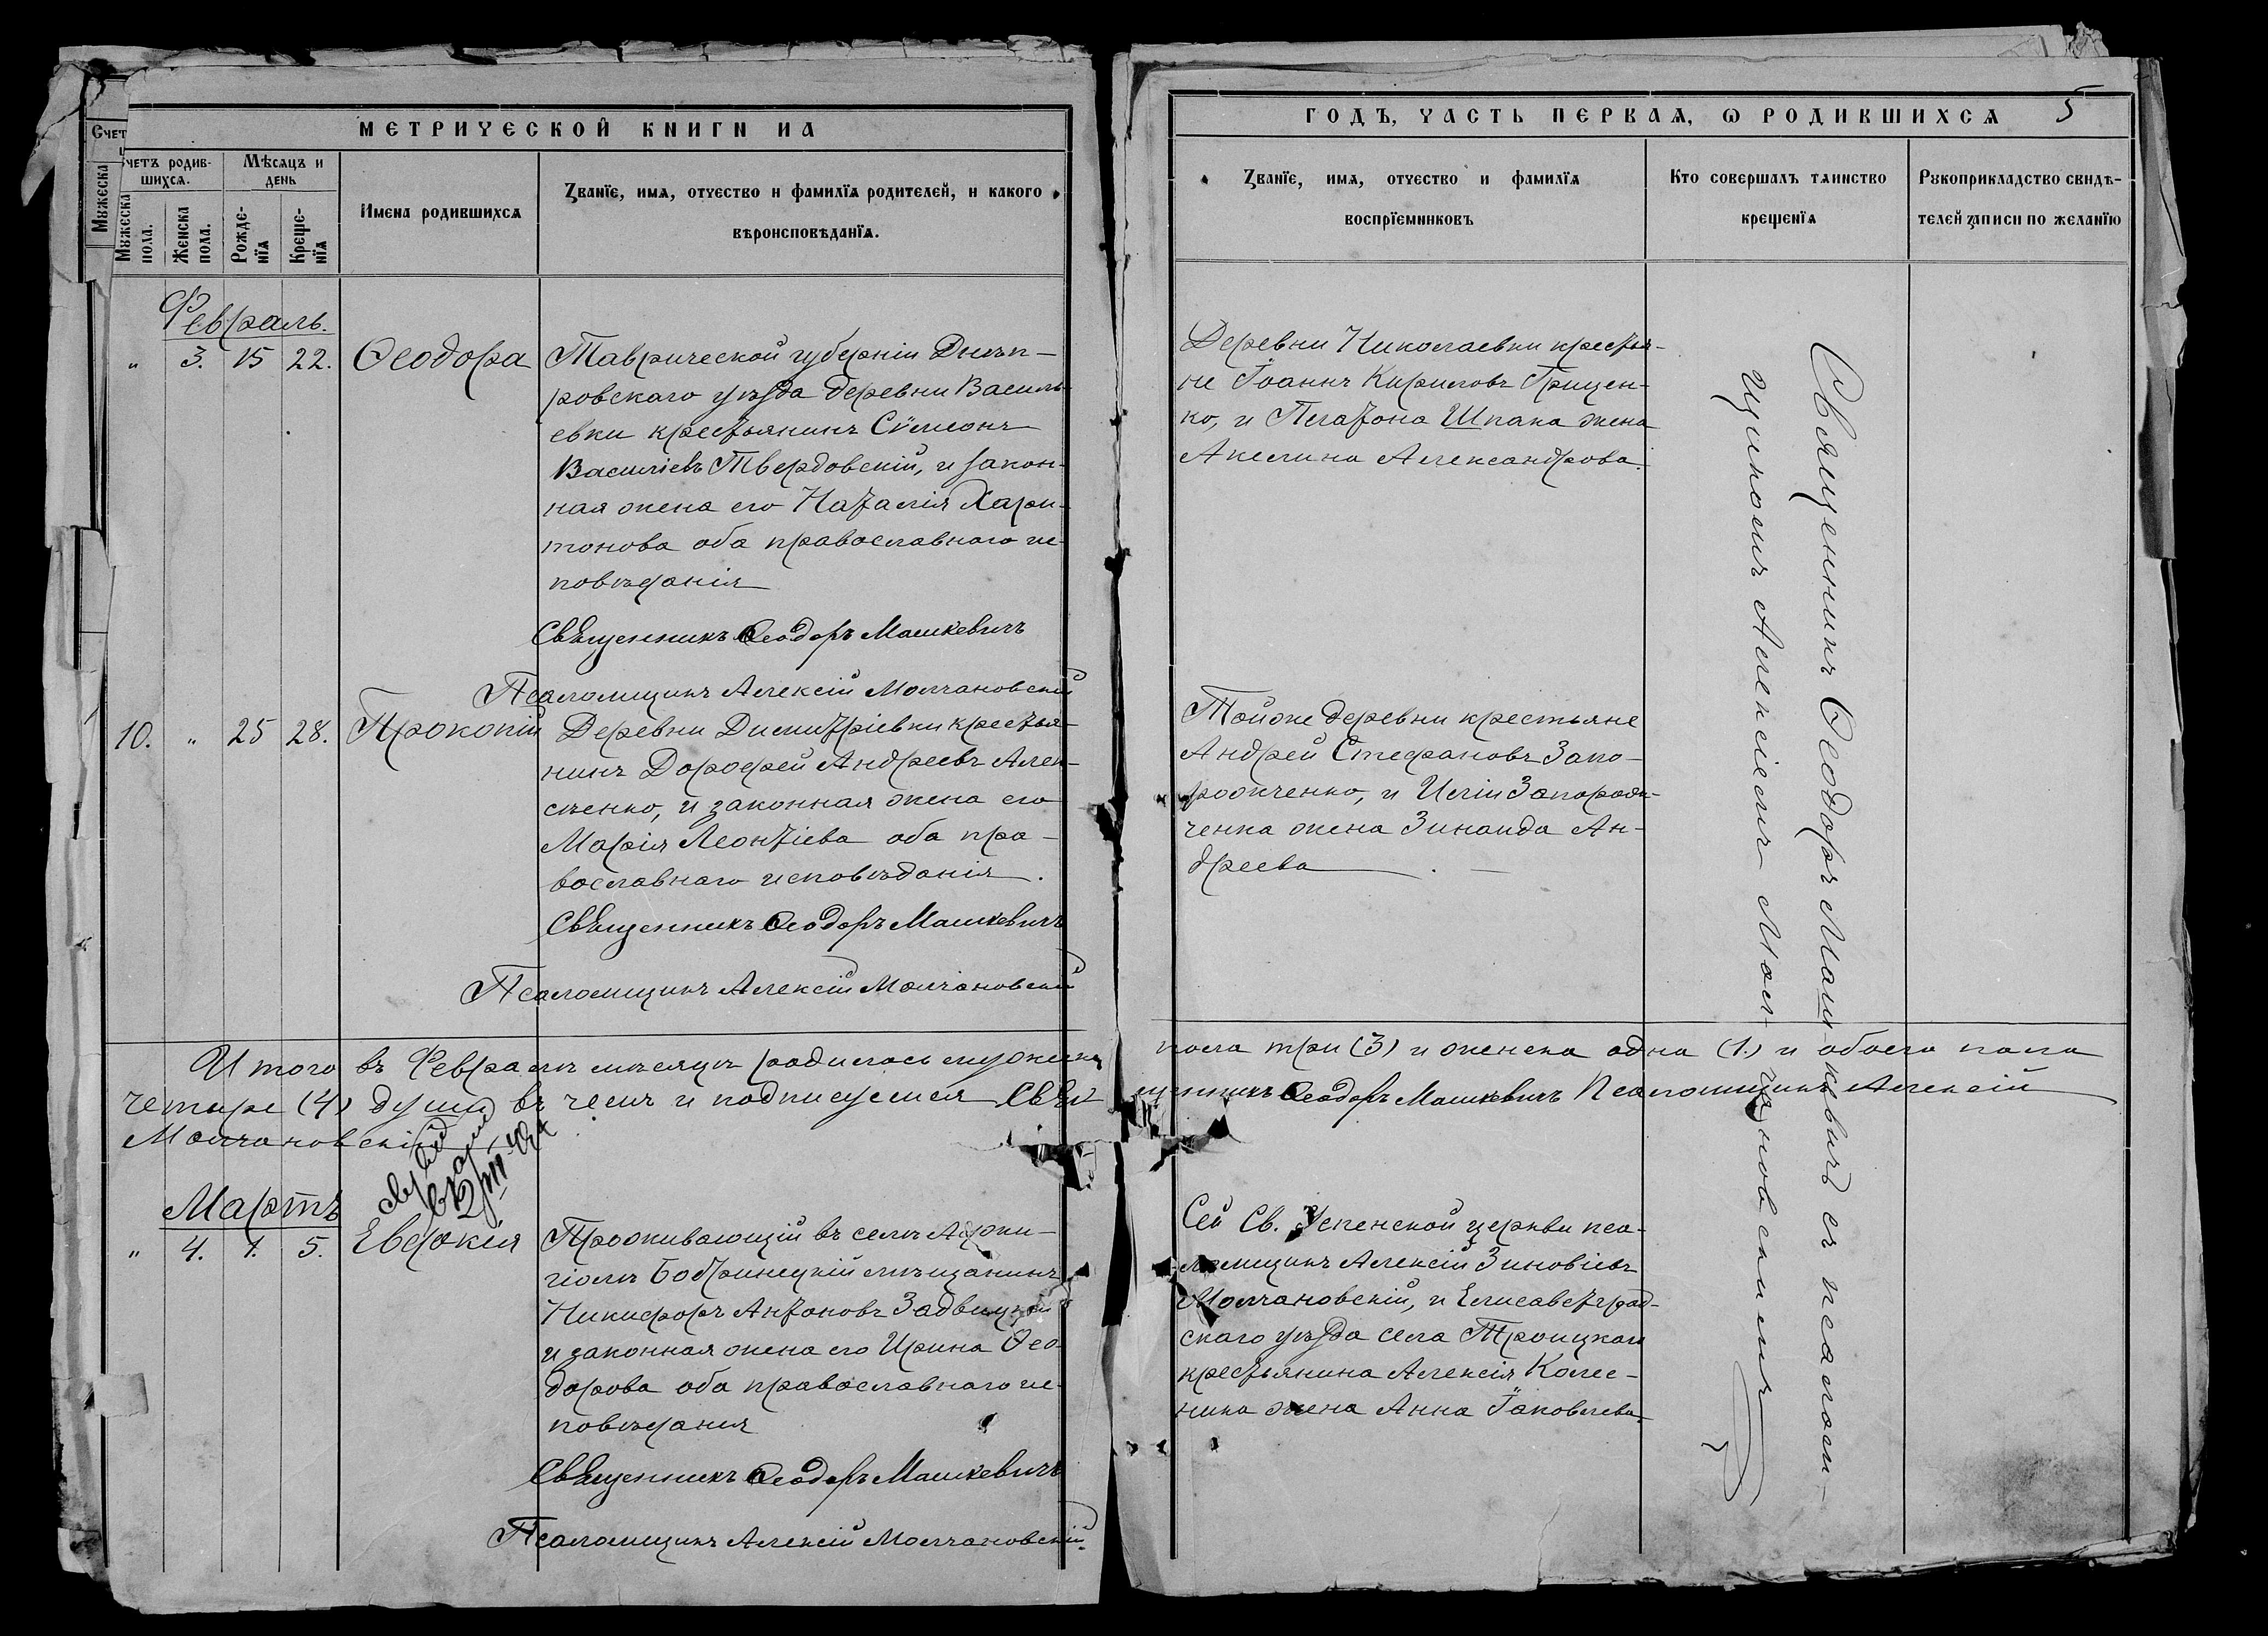 МЕТРИЧЕСКОЙ КНИГИ НА
Счетъ родив-
шихся.
Мѣсяцъ и
день
Мужеска
пола.
Женска
пола.
Рожде-
нїя
Креще-
нїя
Имена родившихся
Званїе, имя, отчество и фамилїя родителей, и какого
вѣроисповѣданїя.
Февраль.
" 3. 15 22. Ѳеодора
Таврической губерніи Днѣп-
ровскаго уѣзда деревни Василь-
евки крестьянинъ Сѵмеонъ
Василіевъ Твердовскій, и закон-
ная жена его Наталія Хари-
тонова оба православнаго ис-
повѣданія
Священникъ Ѳеодоръ Машкевичъ
Псаломщикъ Алексій Молчановскій
10. " 25 28. Прокопій
Деревни Димитріевки крестья-
нинъ Дорофей Андреевъ Алек-
сѣенко, и законная жена его
Марія Леонтіева оба пра-
вославнаго исповѣданія.
Священникъ Ѳеодоръ Машкевичъ
Псаломщикъ Алексій Молчановскій
Итого въ Февралѣ мѣсяцѣ родилось мужеска
четыре (4) души въ чемъ и подписуемся Свя
Молчановскій
Мартъ
" 4. 1. 5. Евдокія
Проживающій въ селѣ
Бобринецкій мѣщанинъ
Никифоръ Антоновъ
и законная жена его Ирина Ѳео-
дорова оба православнаго ис-
повѣданія
Священникъ Ѳеодоръ Машкевичъ
Псаломщикъ Алексій Молчановскій.
ГОДЪ, ЧАСТЬ ПЕРВАЯ, Ѡ РОДИВШИХСЯ 5
Званїе, имя, отчество и фамилїя
воспрїемниковъ
Кто совершалъ таинство
крещенїя
Рукоприкладство свидѣ-
телей записи по желанїю
Деревни Николаевки крестья-
не Іоаннъ Кириловъ Грицен-
ко, и Платона Шпака жена
Акилина Александрова.
Тойже деревни крестьяне
Андрей Стефановъ Запо-
рожченко, и Иліи Запорож-
ченка жена Зинаида Ан-
дреева
пола три (3) и женска одна (1.) и обоего пола
щенникъ Ѳеодоръ Машкевичъ Псаломщикъ Алексій
Сей Св. Успенской церкви пса-
ломщикъ Алексій Зиновіевъ
Молчановскій, и Елисаветград-
скаго уѣзда села Троицкаго
крестьянина Алексія Колес-
ника жена Анна Іаковлева
Священникъ Ѳеодоръ Машкевичъ съ псалом-
щикомъ Алексіемъ Молчановскимъ